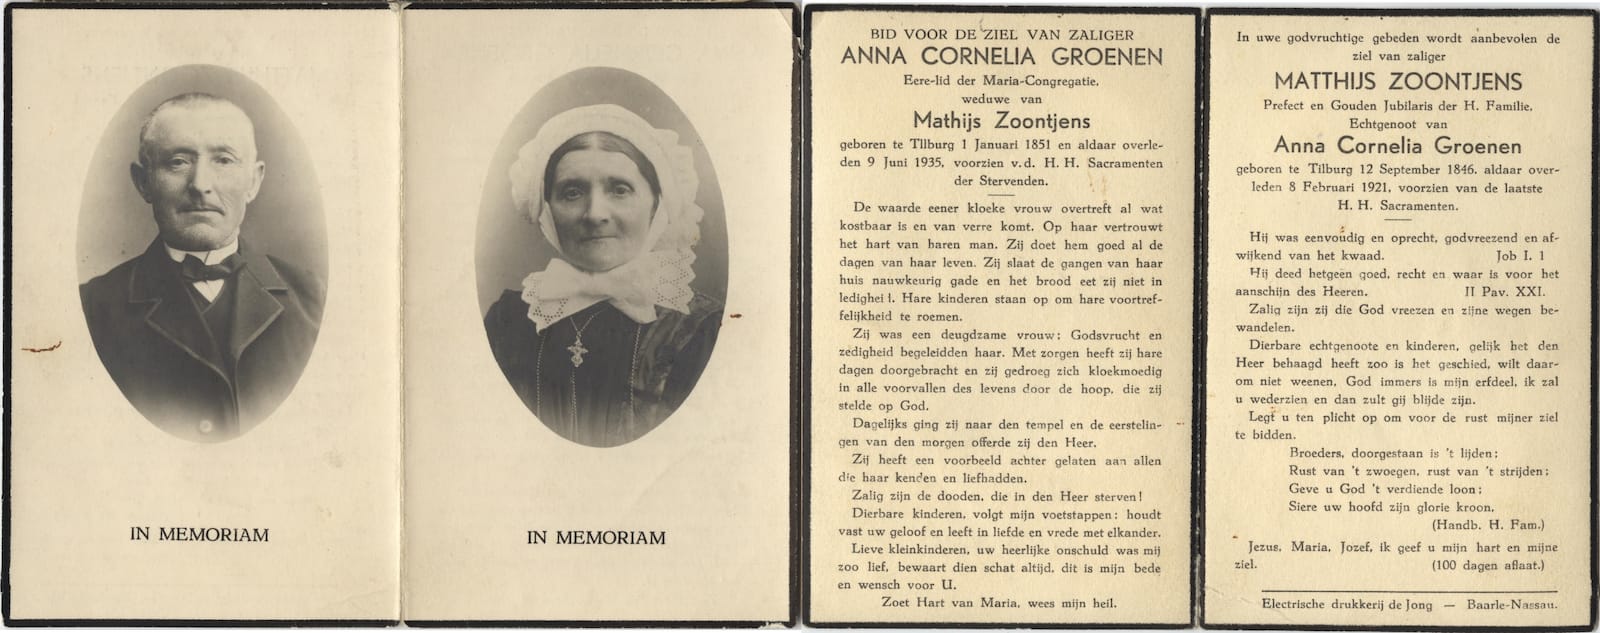 IN MEMORIAM
IN MEMORIAM
BID VOOR DE ZIEL VAN ZALIGER
ANNA CORNELIA GROENEN
Eere-lid der Maria-Congregatie,
weduwe van
Mathijs Zoontjens
geboren te Tilburg 1 Januari 1851 en aldaar overle-
den 9 Juni 1935, voorzien v.d. H. H. Sacramenten
der Stervenden.
De waarde eener kloeke vrouw overtreft al wat
kostbaar is en van verre komt. Op haar vertrouwt
het hart van haren man. Zij doet hem goed al de
dagen van haar leven. Zij slaat de gangen van haar
huis nauwkeurig gade en het brood eet zij niet in
ledigheid. Hare kinderen staan op om hare voortref-
felijkheid te roemen.
Zij was een deugdzame vrouw: Godsvrucht en
zedigheid begeleidden haar. Met zorgen heeft zij hare
dagen doorgebracht en zij gedroeg zich kloekmoedig
in alle voorvallen des levens door de hoop, die zij
stelde op God.
Dagelijks ging zij naar den tempel en de eerstelin-
gen van den morgen offerde zij den Heer.
Zij heeft een voorbeeld achter gelaten aan allen
die haar kenden en liefhadden.
Zalig zijn de dooden, die in den Heer sterven!
Dierbare kinderen, volgt mijn voetstappen: houdt
vast uw geloof en leeft in liefde en vrede met elkander.
Lieve kleinkinderen, uw heerlijke onschuld was mij
zoo lief, bewaart dien schat altijd, dit is mijn bede
en wensch voor U.
Zoet Hart van Maria, wees mijn heil.
In uwe godvruchtige gebeden wordt aanbevolen de
ziel van zaliger
MATTHIJS ZOONTJENS
Prefect en Gouden Jubilaris der H. Familie,
Echtgenoot van
Anna Cornelia Groenen
geboren te Tilburg 12 September 1846, aldaar over-
leden 8 Februari 1921, voorzien van de laatste
H. H. Sacramenten.
Hij was eenvoudig en oprecht, godvreezend en af-
wijkend van het kwaad. Job I. 1
Hij deed hetgeen goed, recht en waar is voor het
aanschijn des Heeren. II Pav. XXI.
Zalig zijn zij die God vreezen en zijne wegen be-
wandelen.
Dierbare echtgenoote en kinderen, gelijk het den
Heer behaagd heeft zoo is het geschied, wilt daar-
om niet weenen, God immers is mijn erfdeel, ik zal
u wederzien en dan zult gij blijde zijn.
Legt u ten plicht op om voor de rust mijner ziel
te bidden.
Broeders, doorgestaan is 't lijden;
Rust van 't zwoegen, rust van 't strijden;
Geve u God 't verdiende loon;
Siere uw hoofd zijn glorie kroon,
(Handb. H. Fam.)
Jezus, Maria, Jozef, ik geef u mijn hart en mijne
ziel. (100 dagen aflaat.)
Electrische drukkerij de Jong — Baarle-Nassau.